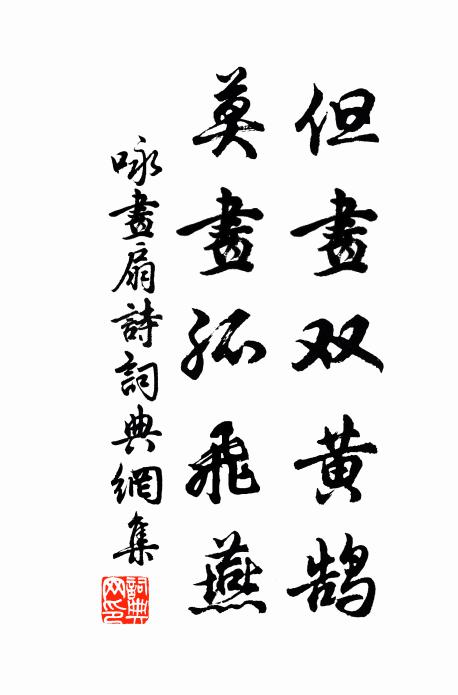 但畫双黄鹄
莫畫孤飛燕
咏畫扇詩詞典網集
詞典
网印